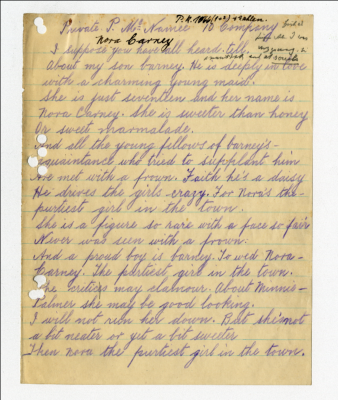 P.R. 1944
Private P. McNamee B Company
Nora Carney
I suppose you have all heard tell
About my son barney. He is deeply in love
with a charming young maid.
She is just seventeen and her name is
Nora Carney. She is sweeter than honey
Or sweet marmalade.
And all the young fellows of barney's-
aquaintance who tried to supplant him
Are met with a frown. Faith he's a daisy
He drives the girls crazy. For Nora's the-
purtiest girl in the town.
She is a figure so rare with a face so fair
Never was seen with a frown.
And a proud boy is barney. To wed Nora-
Carney. The purtiest girl in the town.
The cretics may clamour. About Minnie-
Palmer she may be good looking.
I will not run her down. But she's not
a bit neater or yet a bit sweeter
Then nora the purtiest girl in the town.